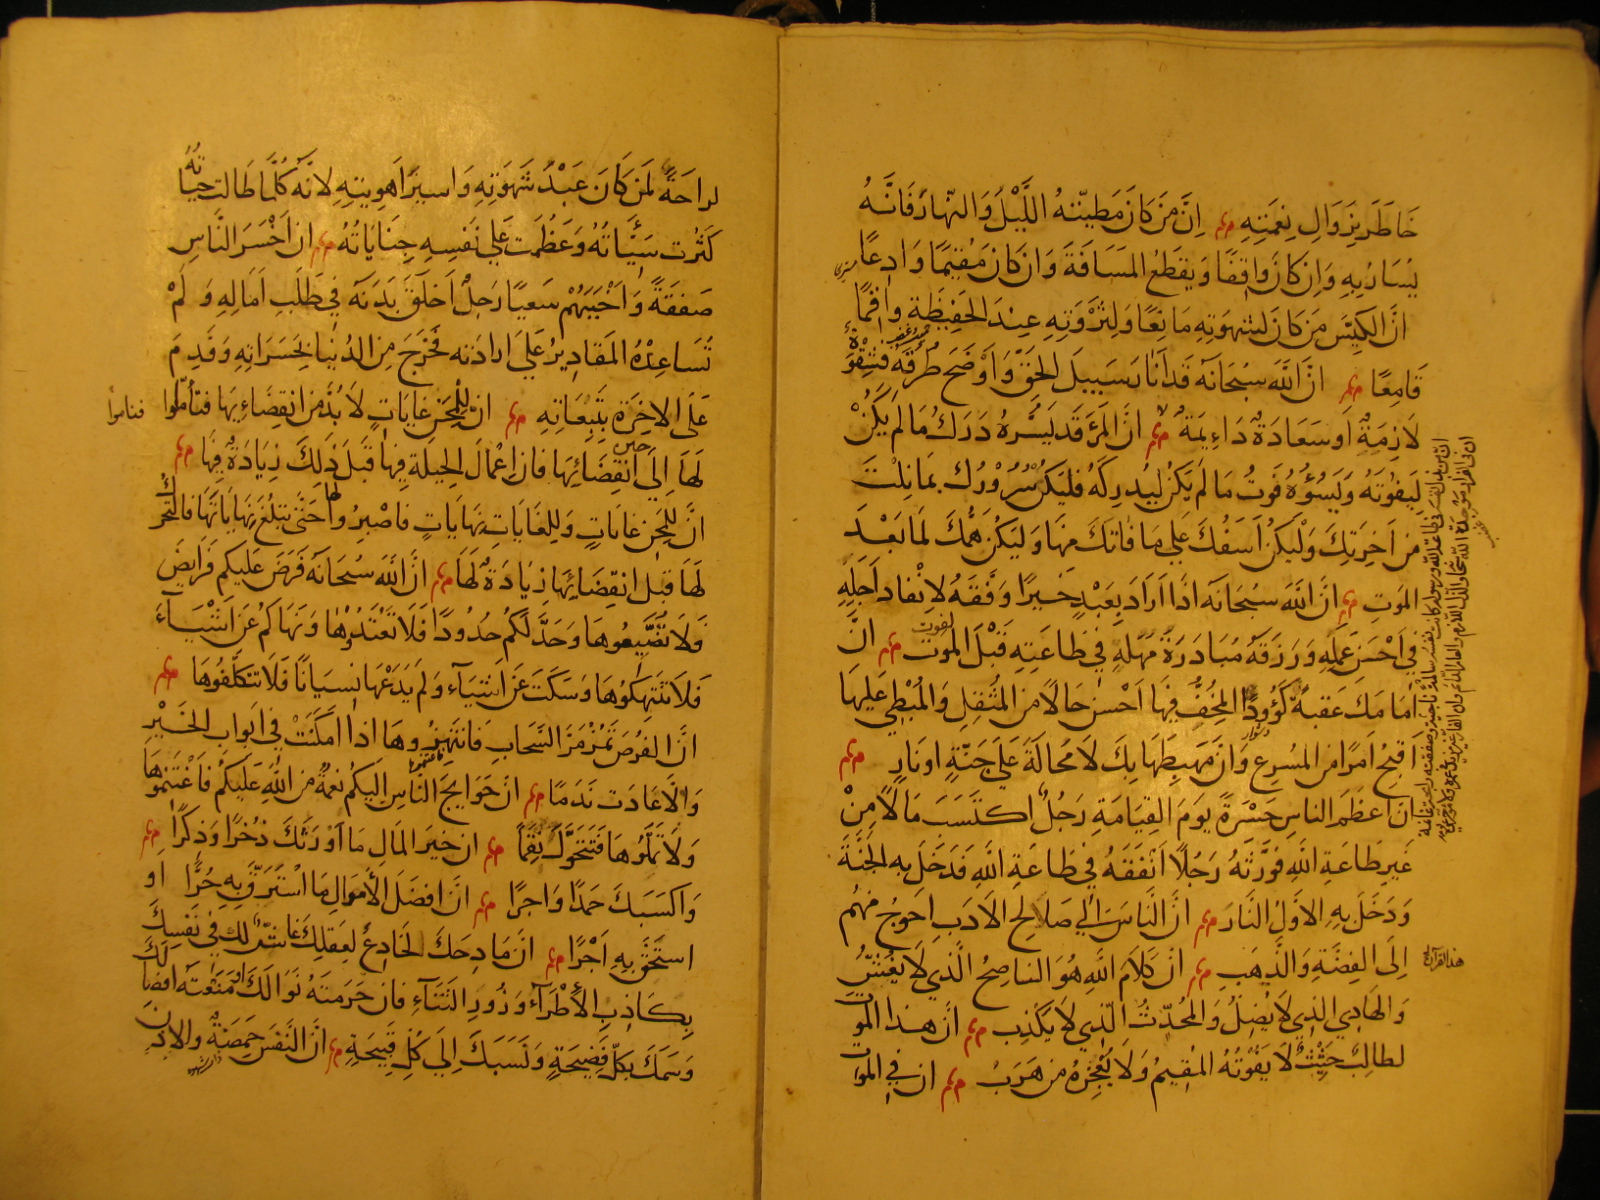 خَاطَرَ بِزَوَالِ نِعْمَتِهِ اِنَّ مَنْ كَانَ مَطِيَّتُهُ اللَّيْلُ وَالنَّهَارُ فَانَّهُ
يُسَارُ بِهِ وَاِنْ كَانَ وَاقِفًا وَيَقْطَعُ المَسَافَةَ وَاِنْ كَانَ مُقِيمًا وَادِعًا
انَّ الكَيِّسَ مَنْ كَانَ لِشَهْوَتِهِ مَانِعًا وَلِنَزْوَتِهِ عِنْدَ الحَفِيظَةِ وَاقِمًا
قَامِعًا انَّ اللَّهَ سُبْحَانَهُ قَدْ اَنَارَ سَبِيلَ الحَقِّ وَاَوْضَحَ طُرُقَهُ فَشِقْوَةٌ
لَازِمَةٌ اَوْ سَعَادَةٌ دَاءِيمَةٌ انَّ المَرْءَ قَدْ يَسُرُّهُ دَرَكُ مَا لَمْ يَكُنْ
لِيَفُوتَهُ وَيَسُوُّهُ فَوْتُ مَا لَمْ يَكُنْ لِيُدْرِكَهُ فَلْيَكُنْ سُرُوْرُكَ بِمَا نِلْتَ
مِنْ اخِرَتِكَ وَلْيَكُنْ اَسَفُكَ عَلَى مَا فَاتَكَ مِنْهَا وَلْيَكُنْ هَمُّكَ لِمَا بَعْدَ
المَوْتِ انَّ اللَّهَ سُبْحَانَهُ اذَا اَرَادَ بِعَبْدٍ خَيْرًا وَفَّقَهُ لِانْفَادِ اَجَلِهِ
فِي اَحْسَنِ عَمَلِهِ وَرَزَقَهُ مُبَادَرَةَ مَهَلِهِ فِي طَاعَتِهِ قَبْلَ المَوْت انَّ
اَمَامَكَ عَقَبةً كَؤُودًا المُخِفُّ فِيهَا اَحْسَنُ حَالًا مِنَ المُثْقِلِ وَالمُبْطِي عَلَيهَا
اقبَحُ امرًا مِنَ المُسْرِعِ وَانَّ مَهبِطَهَا بِكَ لَا مَحَالَةَ عَلَى جَنَّةٍ اَو نَارٍ
انَّ اَعظَمَ الناسِ حَسْرَةً يَومَ القِيَامَةِ رَجُلٌ اكتَسَبَ مَالًا مِنْ
غَيرِ طَاعَةِ اللَّهِ فَوَرَّثَهُ رَجُلًا اَنْفَقَهُ فِي طَاعَةِ اللَّهِ فَدَخَلَ بِهِ الجَنَّةَ
وَدَخَلَ بِهِ الاَوَّلُ النَّارَ انَّ النَّاسَ اِلَي صَالِحِ الاَدَبِ اَحوَجُ مِنهُم
اِلَى الفِضَّةِ وَالذَّهَبِ انَّ كَلَامَ اللَّهِ هُوَ النَّاصِحُ الَّذِي لَا يَغُشُّ
وَالهَادِي الذِي لَا يُضِلُّ وَالمُحَدِّثُ الَّذِي لَا يَكْذِب انَّ هذا المَوْتَ
لطالِبٌ حَثِيثٌ لَا يَفُوتُهُ المُقِيمُ وَلَا يُعْجِزُهُ مَنْ هَرَبَ ان فِي المَوتِ
لراحَةً لِمَنْ كَانَ عَبْدَ شَهْوَتِهِ وَاَسِيرَ اَهوِيَتِهِ لِاَنَّهُ كُلَّمَا طَالَت حَيَاتُهُ
كَثُرَت سَيِّاَتُهُ وَعَظُمَت عَلَى نَفسِهِ جِنَايَاتُهُ اِنَّ اَخْسَرَ النَّاسِ
صَفقَةً وَاَخْيَبَهُمْ سَعيًا رَجُلٌ اَخلَقَ بَدَنَهُ فِي طَلَبِ اَمَالِهِ وَلَمْ
تُسَاعِدْهُ المَقَادِيرُ عَلَى ارَادَتِه فَخَرَجَ مِنَ الدُّنْيَا بِحَسَرَاتِهِ وَقَدِمَ
عَلَى الاخِرَةِ بِتَبِعَاتِهِ انَّ لِلْمِحَنِ غَايَاتٍ لَا بُدَّ مِنْ انقِضَاءِيهَا فَتَأمَّلُوا
لَهَا اِلَى حين انقِضَائِهَا فَانَّ اِعْمَالَ الحِيلَةِ فِيهَا قَبلَ ذَلِكَ زِيَادَةٌ فِيهَا
انَّ لِلمِحَنِ غايَاتٍ وَلِلغَايَاتِ نِهَايَاتٍ فَاصْبِرُوا لَهَا حَتَّى تَبْلُغَ نِهَايَاتَهَا فَالتَّحَرُّكُ
لَهَا قَبلَ انقِضَائِهَا زِيَادَةٌ لَهَا انَّ اللَّهَ سُبحَانَهُ فَرَضَ عَلَيكُم فَرَايِضَ
وَلَا تُضَيِّعُوهَا وَحَدَّ لَكُم حُدُودًا فَلَا تَعْتَدُوْهَا وَنَهَاكُمْ عَنْ اَشْيَآءَ
فَلَا تَنتَهِكُوهَا وَسَكَتَ عَنْ اَشيَآءَ وَلَم يَدَعْهَا نِسيَانًا فَلَا تَتَكَلَّفُوهَا
انَّ الفُرَصَ تَمُرُّ مَرَّ السَّحَابِ فَانتَهِزُوهَا اذَا اَمكَنَتْ فِي ابواب الخَيْرِ
وَالَّا عَادَت نَدَمًا انَّ حَوَايجَ النَّاسِ اِلَيكُم نِعْمَةٌ مِنَ اللَّهِ عَلَيكُمْ فَاغْتَنِمُوهَا
وَلَا تَمَلُّوهَا فَتَتَحَوَّلَ نِقَمًا ان خَيرَ المَالِ مَا اَوْرَثَكَ ذُخْرًا وَذِكْرًا
وَاَكسَبَكَ حَمدًا وَاجرًا انَّ افضَلَ الاَموَالِ مَا اسْتُرِقَّ بِهِ حُرٌّ او
استُحِقَّ بِهِ اَجْرًا انَّ مَادِحَكَ لَخَادِعٌ لِعَقلِكَ غَاشٌّ لَكَ فِي نَفْسِكَ
بِكَاذِبِ الاَطرَآءِ وَزُورِ الثَنَآءِ فَان حَرَمتَهُ نَوَالَكَ وَمَنَعْتَهُ افضَالَكَ
وَسَمَكَ بِكُلِّ فَضِيحَةٍ وَنَسَبَكَ اِلَى كُلِّ قَبِيحَةٍ انَّ النَّفسَ حَمِضَةٌ وَالاذن